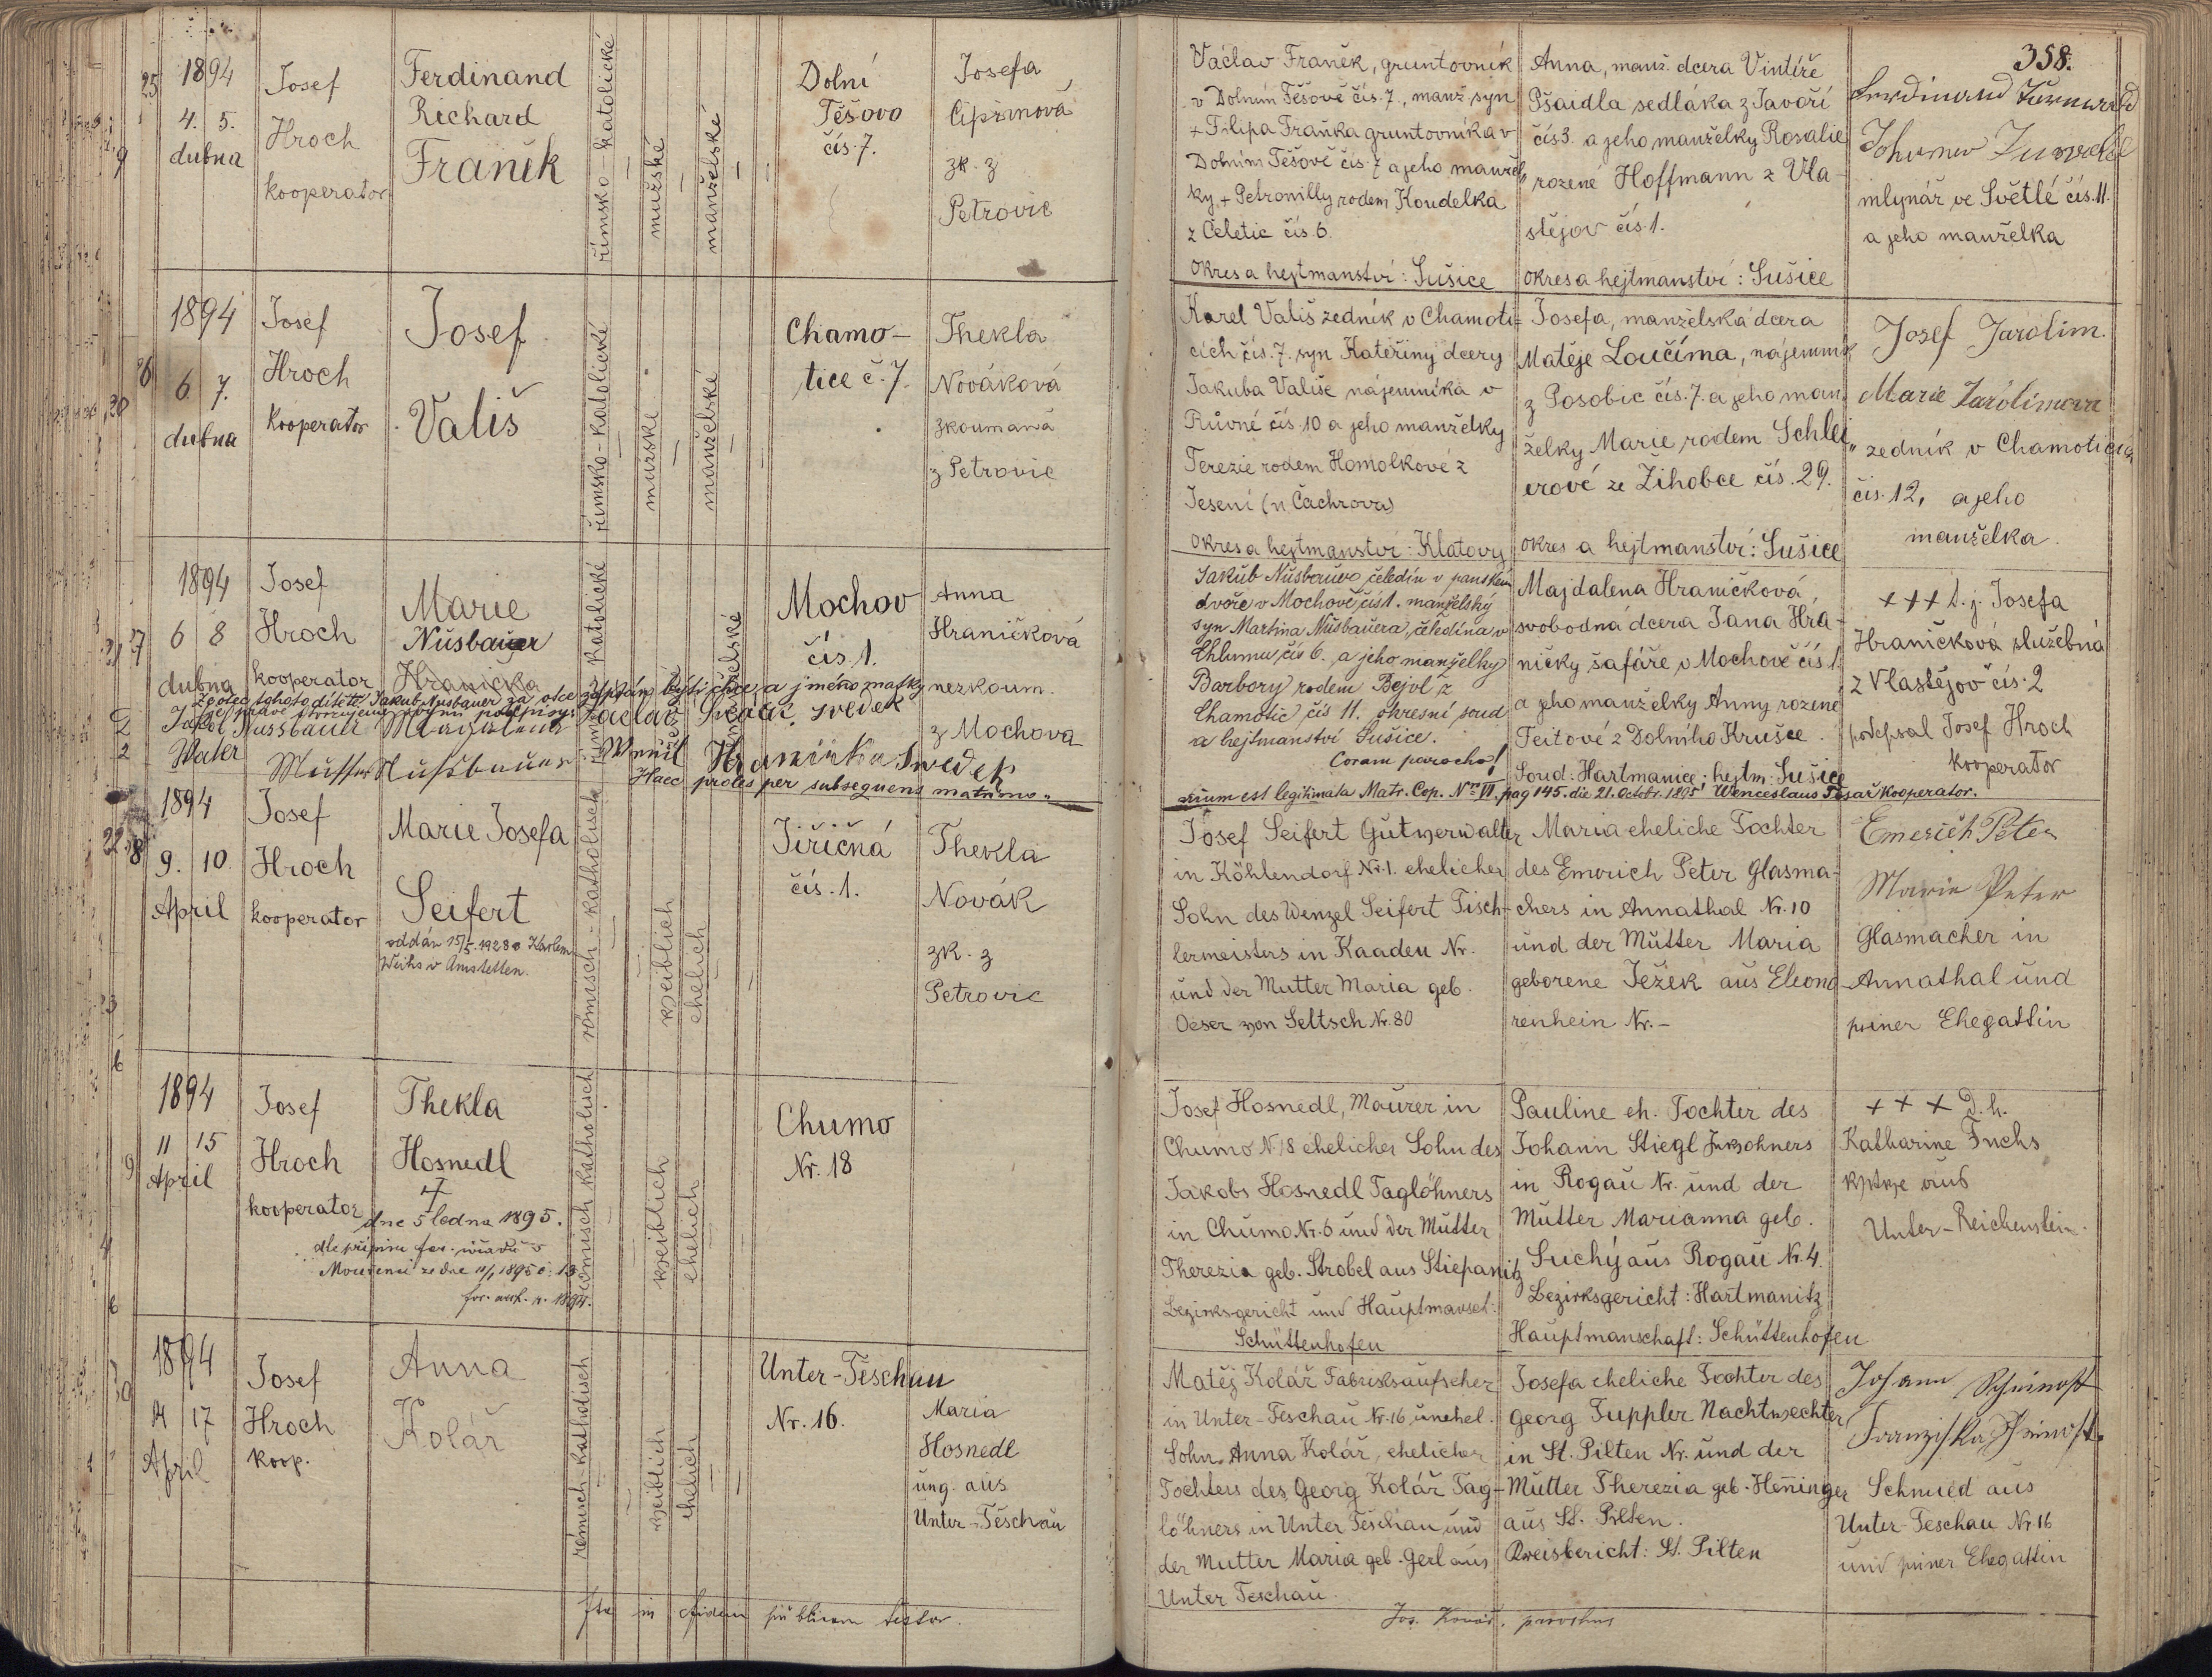 358.
25
1894
4. 5.
dubna
Josef
Hroch
kooperator
Ferdinand
Richard
Franěk
římsko-katolické
mužské
manželské
Dolní
Těšovo
čís. 7.
Josefa
Cipřinová
zk. z
Petrovic
Václav Franěk, gruntovník
v Dolním Těšově čís. 7., manž. syn
+ Filipa Fraňka gruntovníka v
Dolním Těšově čís. 7 a jeho manžel„
ky + Petronilly rodem Koudelka
z Čeletic čís. 6.
okres a hejtmanství: Sušice
Anna, manž. dcera Vintíře
Pšaidla sedláka z Javoří
čís 3. a jeho manželky Rosalie
rozené Hoffmann z Vla-
stějov čís. 1.
okres a hejtmanství: Sušice
Ferdinand
mlynář ve Světlé čís. 11.
a jeho manželka
1894
6 7.
dubna
Josef
Hroch
kooperator
Josef
Vališ
římsko-katolické
mužské
manželské
Chamo-
tice č. 7.
Thekla
Nováková
zkoumaná
z Petrovic
Karel Vališ zedník v Chamoti-
cích čís. 7. syn Kateřiny dcery
Jakuba Vališe nájemníka v
Růvné čís. 10 a jeho manželky
Terezie rodem Homolkové z
Jesení (n Čachrova)
okres a hejtmanství: Klatovy
Josefa, manželská dcera
Matěje Loučíma, nájemník
z Posobic čís. 7. a jeho man„
želky Marie rodem Schlei„
erové ze Žihobce čís. 29.
okres a hejtmanství: Sušice
Josef Jarolim.
Marie Jarolimova
zedník v Chamoticích
čís. 12, a jeho
manželka.
1894
6 8
dubna
Josef
Hroch
kooperator
Marie
Nüsbauer
Hranička
katolické
Mochov
čís. 1.
Anna
Hraničková
nezkoum.
z Mochova
že otec tohoto dítěte Jakub Nusbauer za otce zapsán býti chce a jméno matky
Jakob Nussbauer Magdalena Václav svědek
Vater Mutter Nussbauer Hranička svedek
Haec proles per subsequens matrimo„
nium est legitimata Matr. Cop. Nro VI. pag 145. die 21. Octobr. 1895 Wenceslaus Tesař kooperator.
Jakub Nüsbauer čeledín v panském
dvoře v Mochově čís 1. manželský
syn Martina Nüsbauera, čeledína v
Chlumu čís 6. a jeho manželky
Barbory rodem Bejvl z
Chamotic čís 11. okresní soud
a hejtmanství Sušice.
Coram parocho!
Majdalena Hraničková,
svobodná dcera Jana Hra-
ničky šafáře v Mochově čís 1.
a jeho manželky Anny rozené
Feitové z Dolního Krušce.
Soud: Hartmanice; hejtm: Sušice
+++ t. j. Josefa
Hraničková služebná
z Vlastějov čís. 2
podepsal Josef Hroch
kooperator
1894
9. 10.
April
Josef
Hroch
kooperator
Marie Josefa
Seifert
oddán 15/5. 1928 s Karlem
Weihs v Amstetten.
römisch-katholisch
weiblich
ehelich
Jiřičná
čís. 1.
Thekla
Novák
zk. z
Petrovic
Josef Seifert Gutsverwalter
in Köhlendorf Nr. 1. ehelicher
Sohn des Wenzel Seifert Tisch-
lermeisters in Kaaden Nr.
und der Mutter Maria geb.
Oeser von Seltsch Nr. 80
Maria eheliche Tochter
des Emerich Peter Glasma-
chers in Annathal Nr. 10
und der Mutter Maria
geborene Ježek aus Eleono
renhein Nr. -
Emerich Peter
Marie Peter
Glasmacher in
Annathal und
seiner Ehegattin
1894
11 15
April
Josef
Hroch
kooperator
Thekla
Hosnedl
†
dne 5 ledna 1895.
römisch katholisch
weiblich
ehelich
Chumo
Nr. 18
Josef Hosnedl, Maurer in
Chumo N. 18 ehelicher Sohn des
Jakobs Hosnedl Taglöhners
in Chumo Nr. 6 und der Mutter
Therezia geb. Strobel aus Stiepanitz
Bezirksgericht und Hauptmansch:
Schüttenhofen
Pauline eh. Tochter des
Johann Stiegl Inwohners
in Rogau Nr. und der
Mutter Marianna geb.
Suchý aus Rogau Nr. 4.
Bezirksgericht: Hartmanitz
Hauptmanschaft: Schüttenhofen
+ + + D. h.
Katharine Fuchs
Witwe aus
Unter-Reichenstein.
30
1894
14 17
April
Josef
Hroch
koop.
Anna
Kolář
römisch-katholisch
weiblich
ehelich
Unter-Těschau
Nr. 16.
Maria
Hosnedl
ung. aus
Unter-Těschau
Matěj Kolář Fabriksaufseher
in Unter-Teschau Nr. 16 unehel.
Sohn Anna Kolář, ehelicher
Tochters des Georg Kolář Tag-
löhners in Unter Teschau und
der Mutter Maria geb. Gerl aus
Unter Teschau.
Josefa eheliche Tochter des
Georg Tuppler Nachtwechter
in St. Pilten Nr. und der
Mutter Therezia geb. Henninger
aus St. Pilten.
Kreisbericht: St. Pilten
Johann Schimost
Franziska Schimost
Schmied aus
Unter-Teschau Nr. 16
und seiner Ehegattin
Ita in fidem publicam testor.
Jos. Kovář, parochus